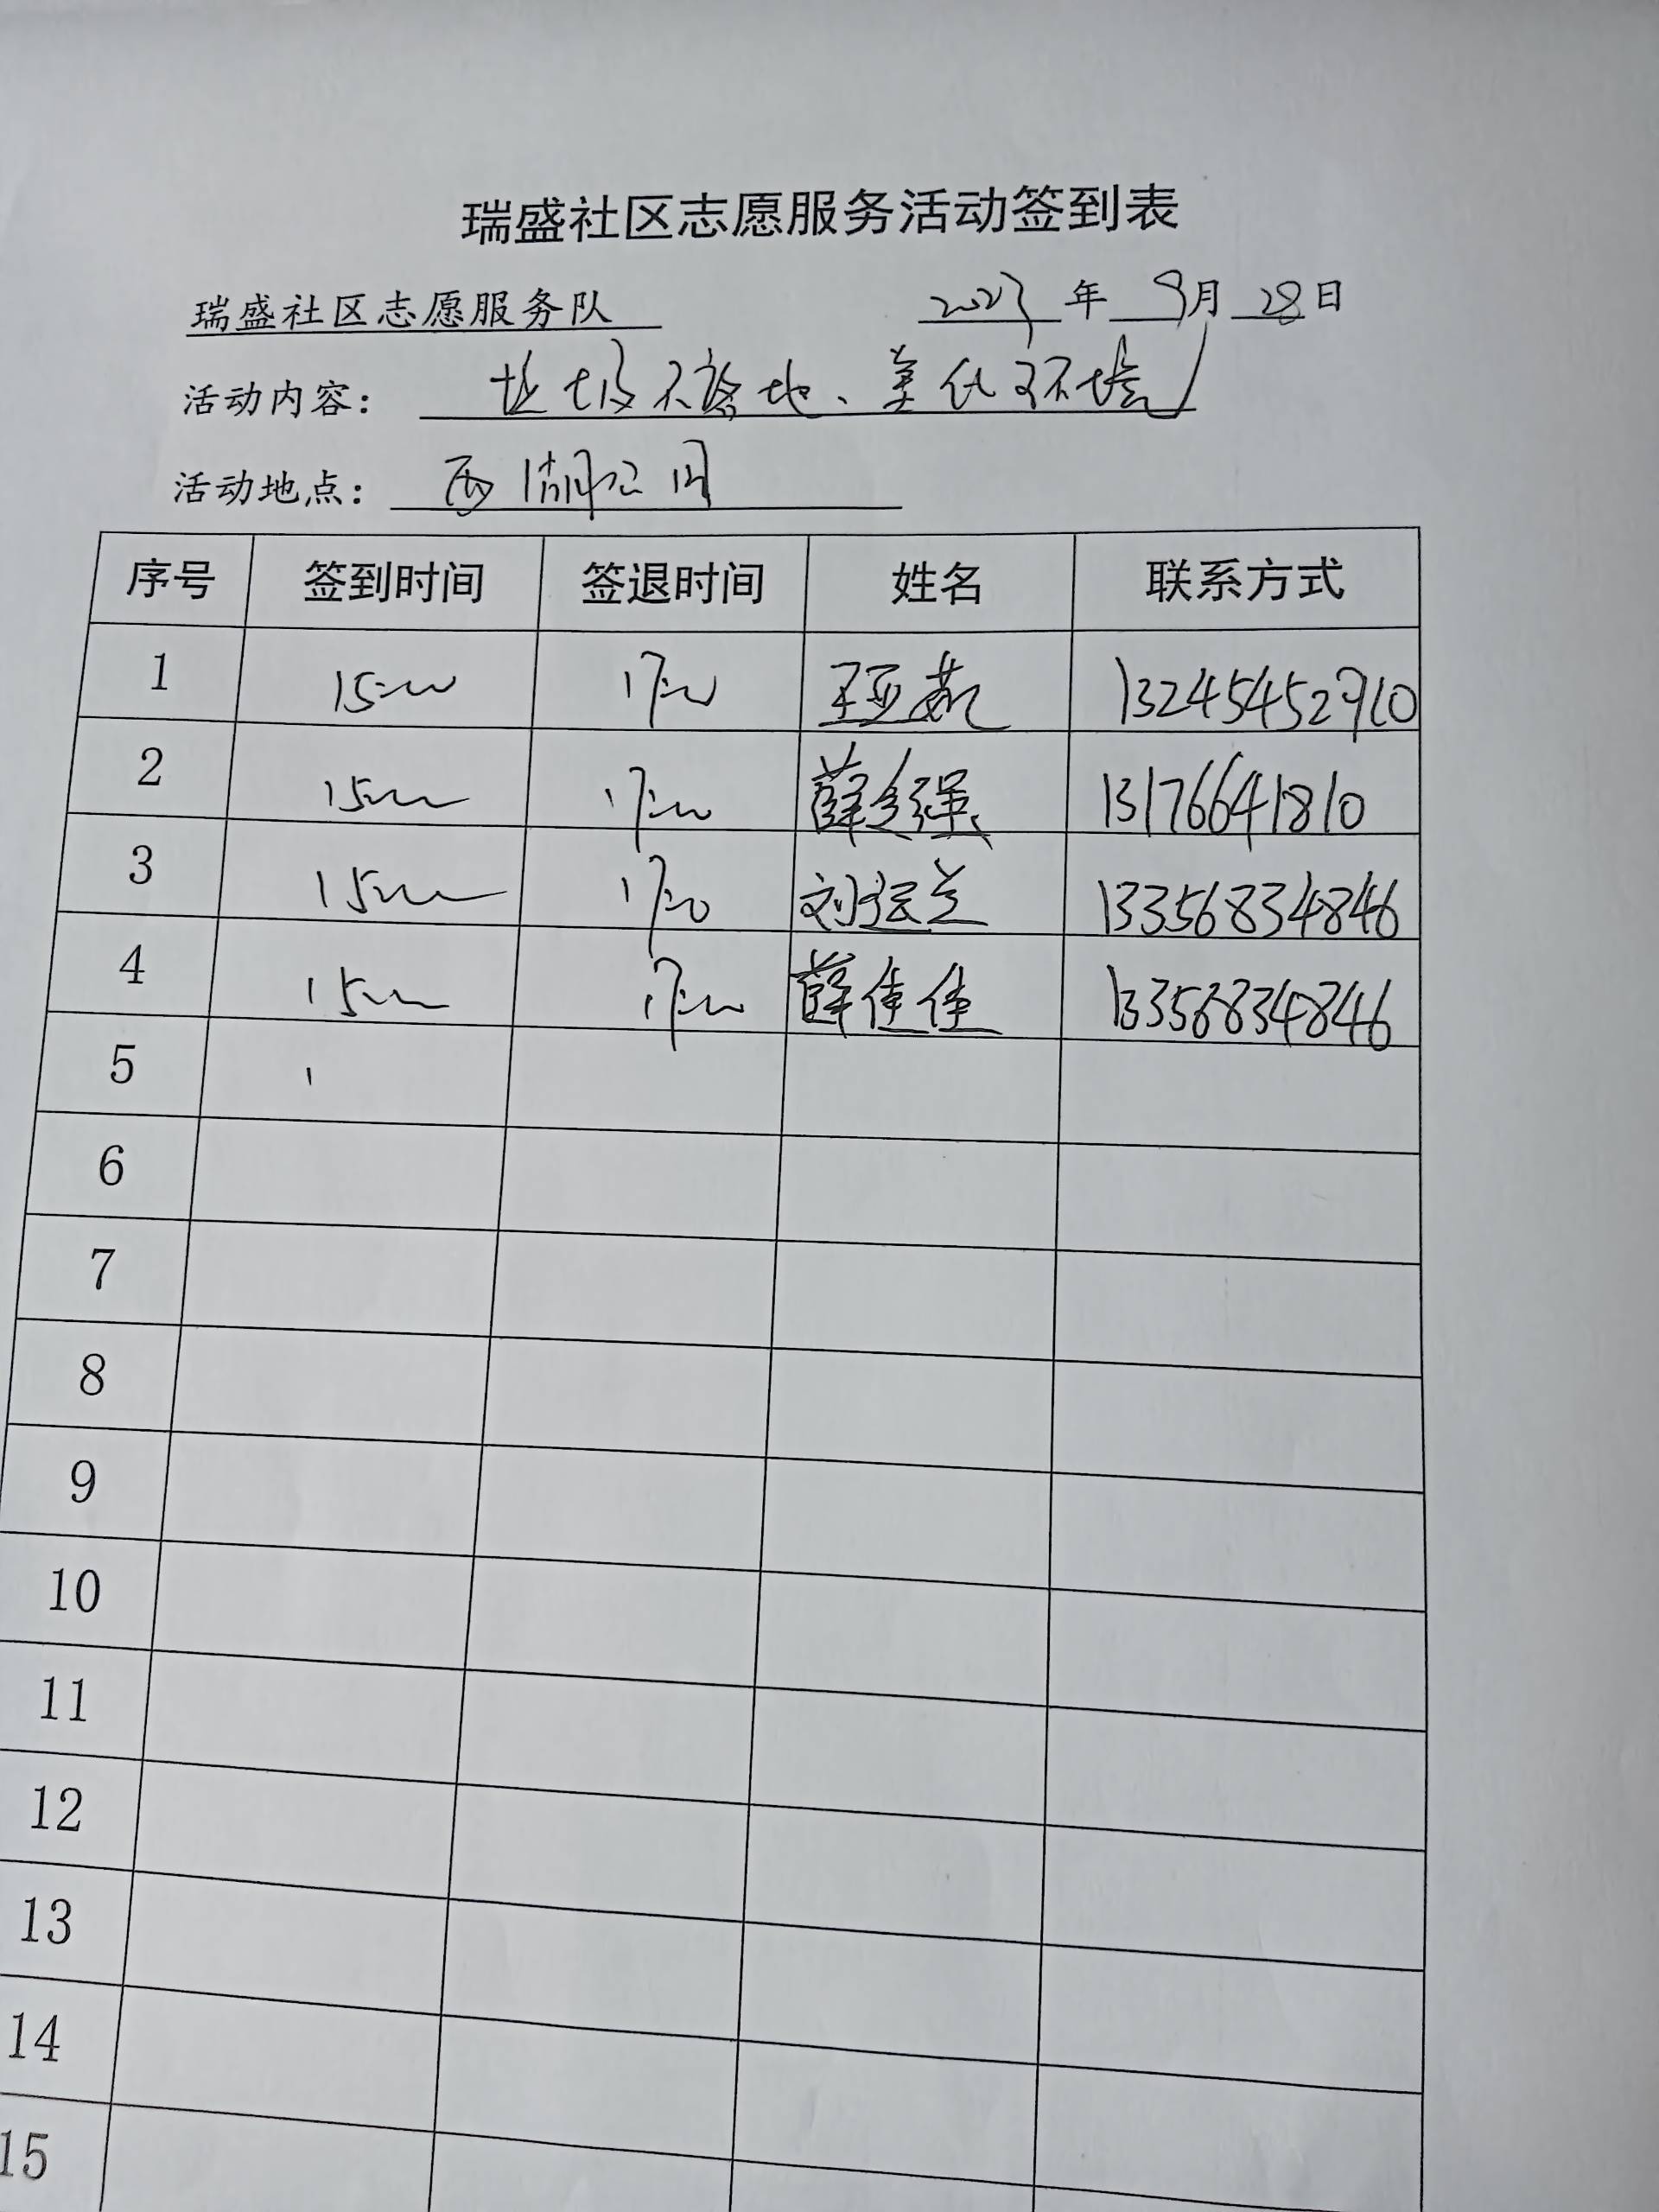 瑞盛社区志愿服务活动签到表
瑞盛社区志愿服务队 2023年 9月 28日
活动内容： 垃圾不落地、美化环境
活动地点： 西湖公园
序号 签到时间 签退时间 姓名 联系方式
1 15:00 17:00 王亚茹 13245452910
2 15:00 17:00 薛 强 13176641810
3 15:00 17:00 刘 兰 13356834846
4 15:00 17:00 薛佳佳 13356834846
5
6
7
8
9
10
11
12
13
14
15